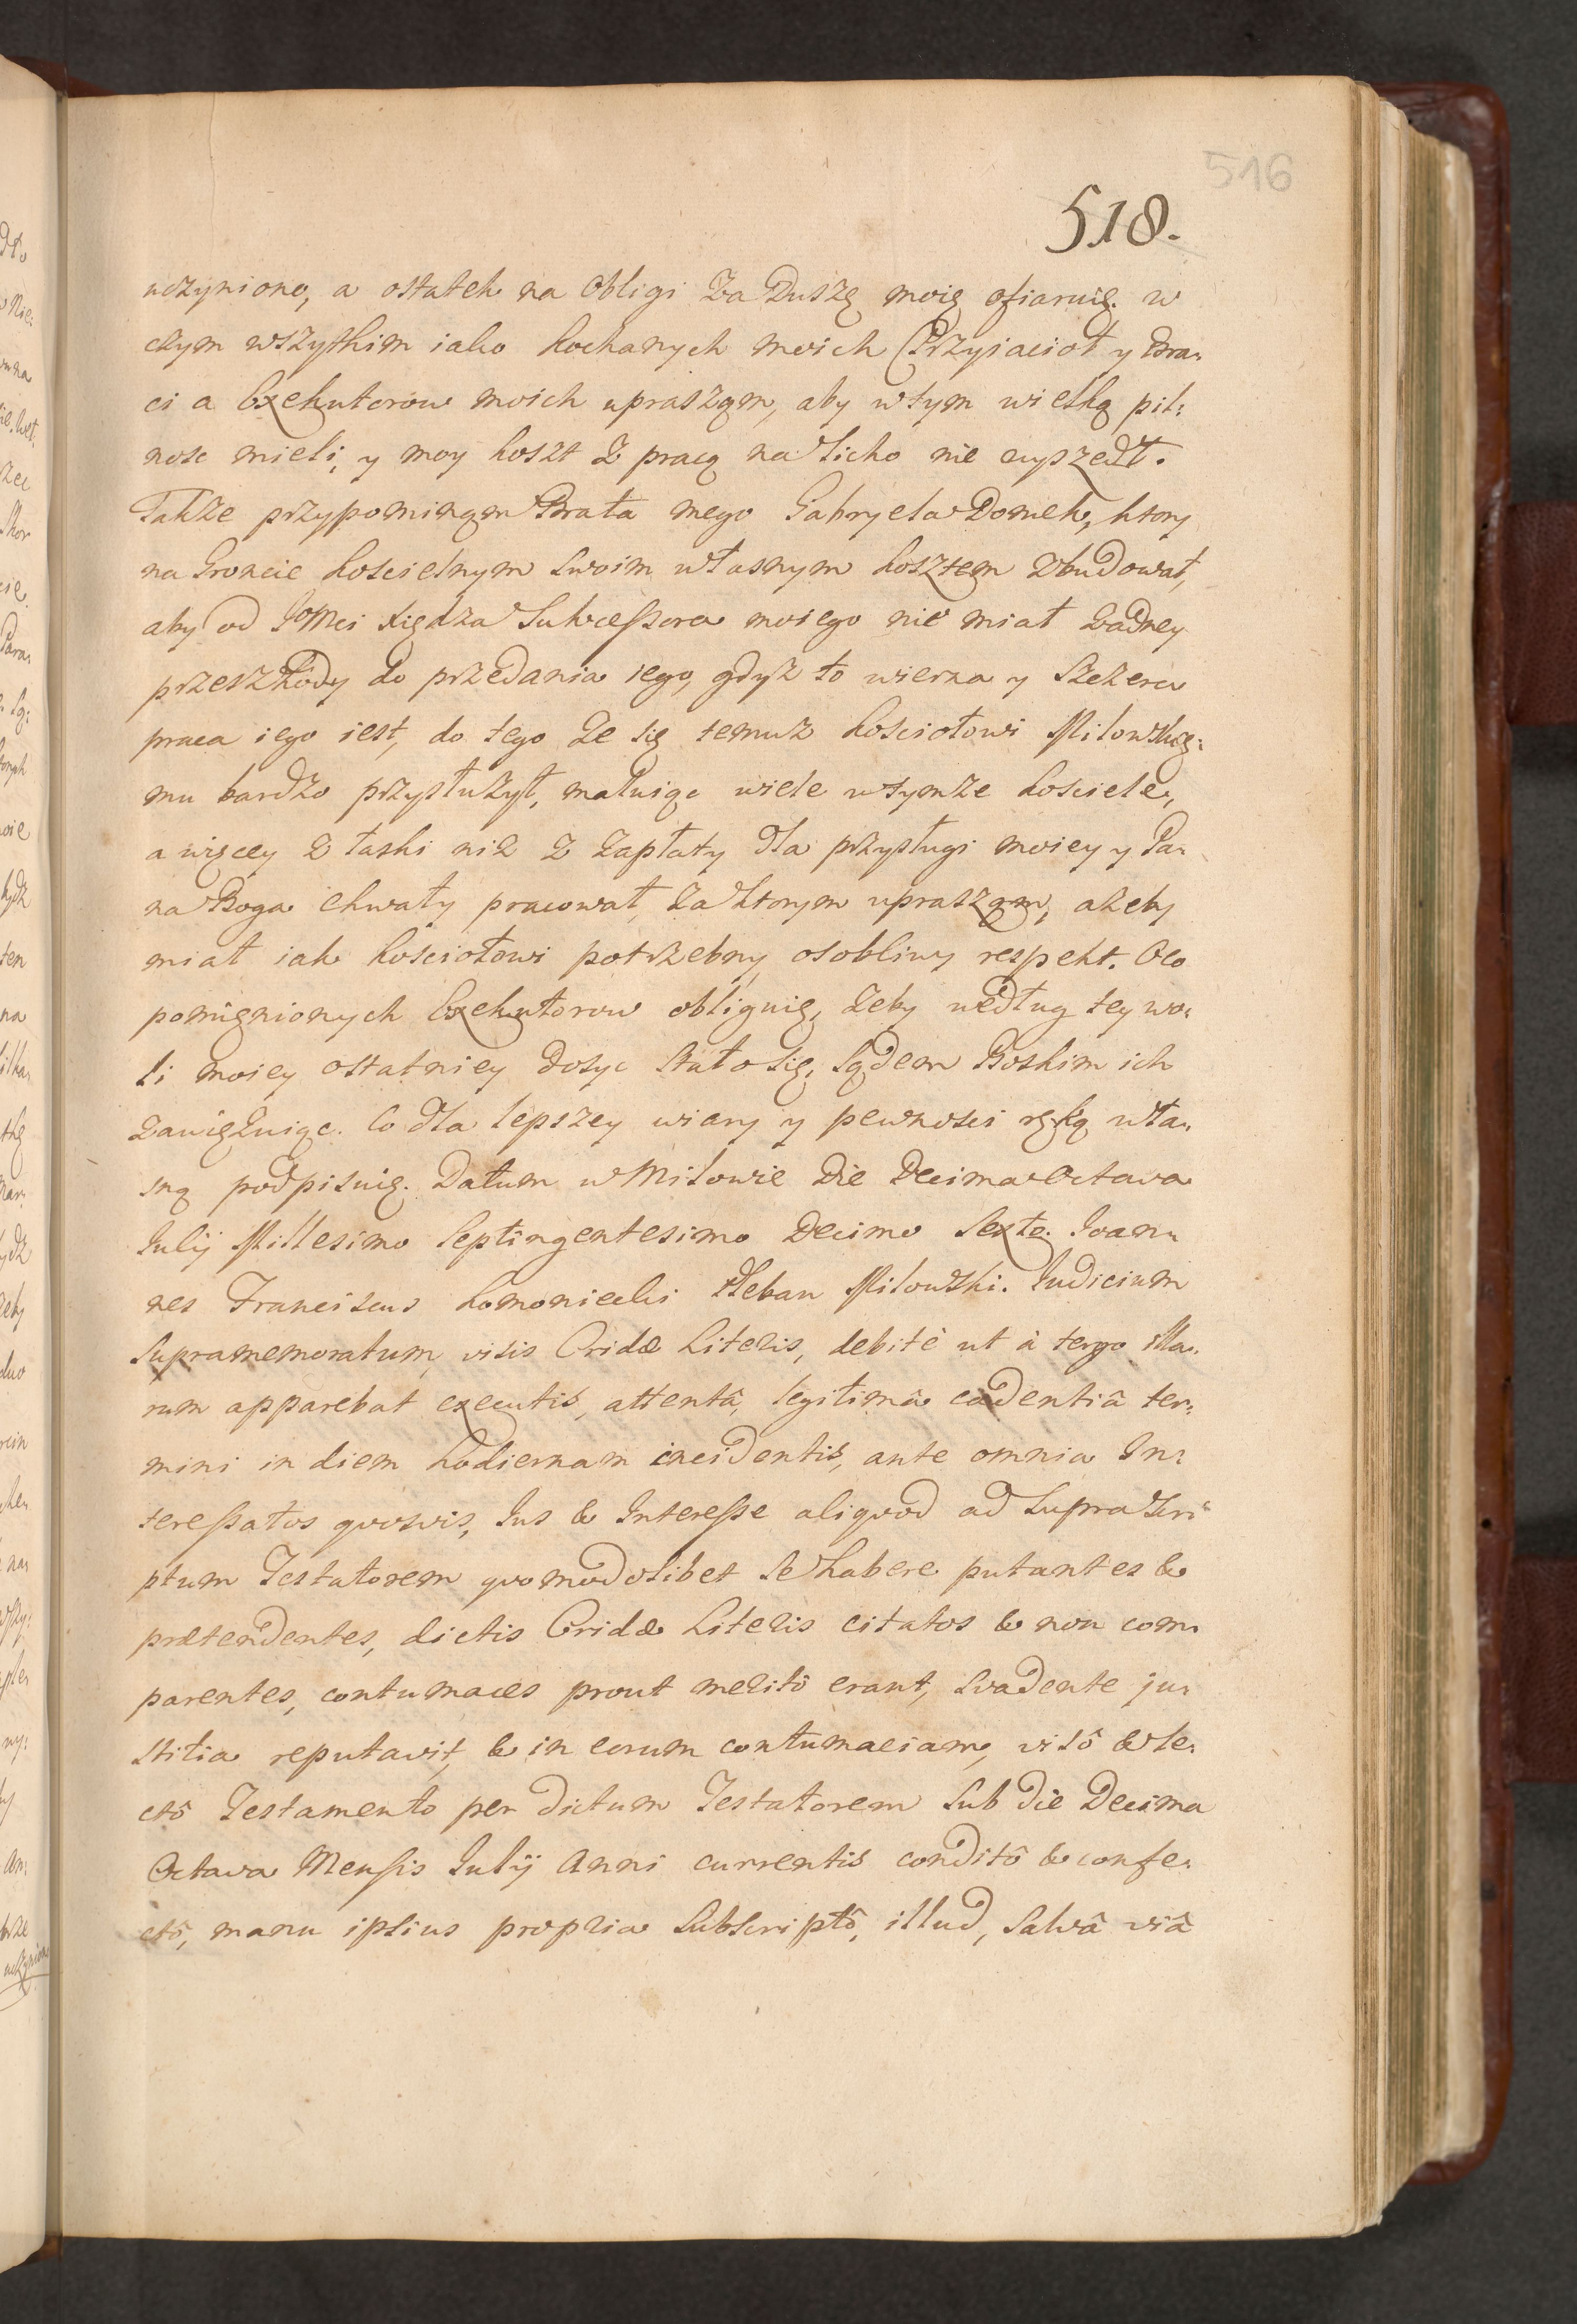 516
518.
uczyniono, a ostatek na Obligi Za Duszę moię ofiaruię. w
czym wszytkim iako kochanych moich Przyiaciół y Bra:
ci a Exekutorow moich upraszam, aby w tym wielką pil:
nosc mieli, y moy koszt z pracą na Licho nie wyszedł.
Takze przypominam Brata mego Gabryela Domek, ktory
na Groncie koscielnym swoim własnym kosztem Zbudował,
aby od JoMci Xiędza Sukcessora moiego nie miał Zadney
przeszkody do przedania iego, gdyz to wierna y Szczera
praca iego iest, do tego Ze się temuz kosciołowi Milowske:
mu bardzo przysłuzył, maluiąc wiele w tymze kosciele,
a więcey z łaski niz z Zapłaty dla przysługi moiey y Pa:
na Boga chwały pracował, Za ktorym upraszam, azeby
miał iak kościołowi potrzebny osobliwy respekt. Oco
pomięnionych Exekutorow obliguię, Zeby według tey wo:
li moiey ostatniey dosyc stało się, Sądem Boskim ich
Zawięzuiąc. Co dla lepszey wiary y pewnosci ręką wła:
sną podpisuię. Datum w Milowie Die Decima Octava
Julij Millesimo Septingentesimo Decimo Sexto. Joan:
nes Franciscus Komoniecki Pleban Milowski. Judicium
Supramemoratum, visis Cridæ Literis, debitè ut à tergo illa:
rum apparebat executis, attentâ, legitimâ cadentiâ ter:
mini in diem hodiernam incidentis, ante omnia In:
teressatos quosvis, Jus & Interesse aliquod ad Suprascri:
ptum Testatorem quomodolibet se habere putantes &
prætendentes, dictis Cridæ Literis citatos & non com:
parentes, contumaces prout meritò erant, svadente ju:
stitia reputavit, & in eorum contumaciam, visô & le:
ctô Testamento per dictum Testatorem sub die Decima
Octava Mensis Julij Anni currentis conditô & confe:
ctô, manu ipsius propria subscriptô, illud, salvâ viâ